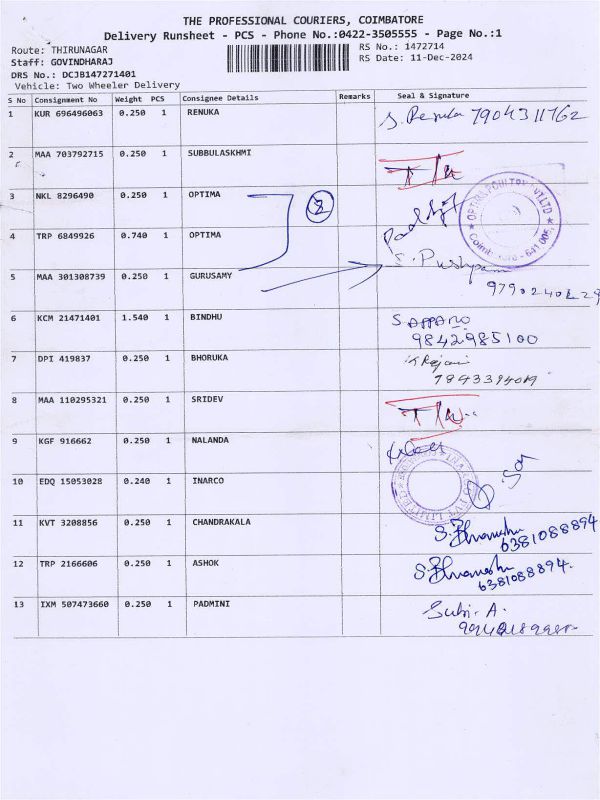 THE PROFESSIONAL COURIERS, COIMBATORE
Delivery Runsheet - PCS - Phone No.:0422-3505555 - Page No.:1
Route: THIRUNAGAR
RS No.: 1472714
Staff: GOVINDHARAJ
RS Date: 11-Dec-2024
DRS No.: DCJB147271401
Vehicle: Two Wheeler Delivery
S No Consignment No Weight PCS Consignee Details Remarks Seal & Signature
1 KUR 696496063 0.250 1 RENUKA S. Renuka 7904311762
2 MAA 703792715 0.250 1 SUBBULASKHMI
3 NKL 8296490 0.250 1 OPTIMA 2
4 TRP 6849926 0.740 1 OPTIMA
S. Pushpam
5 MAA 301308739 0.250 1 GURUSAMY
6 KCM 21471401 1.540 1 BINDHU
9842985100
7 DPI 419837 0.250 1 BHORUKA
8 MAA 110295321 0.250 1 SRIDEV
9 KGF 916662 0.250 1 NALANDA
10 EDQ 15053028 0.240 1 INARCO
11 KVT 3208856 0.250 1 CHANDRAKALA
6381088894
12 TRP 2166606 0.250 1 ASHOK
6381088894.
13 IXM 507473660 0.250 1 PADMINI Subi. A.